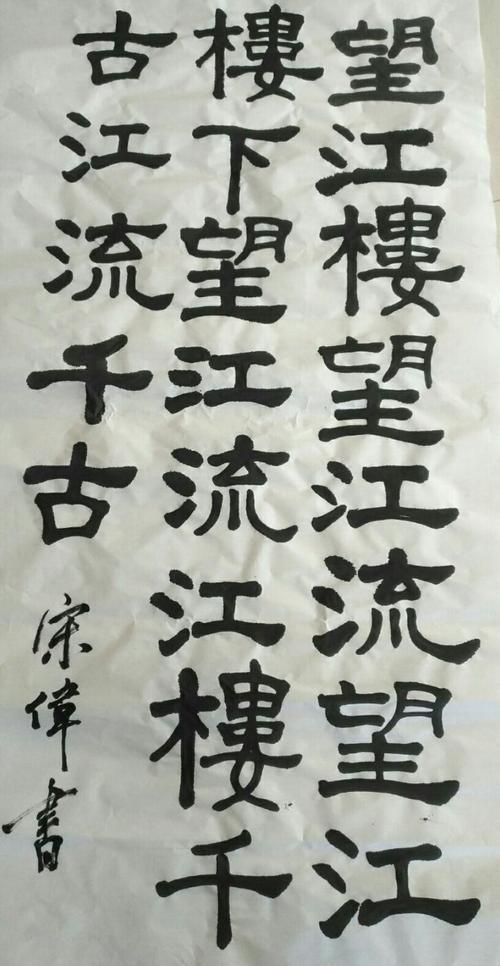 望江樓望江流望江
樓下望江流江樓千
古江流千古
宋偉書